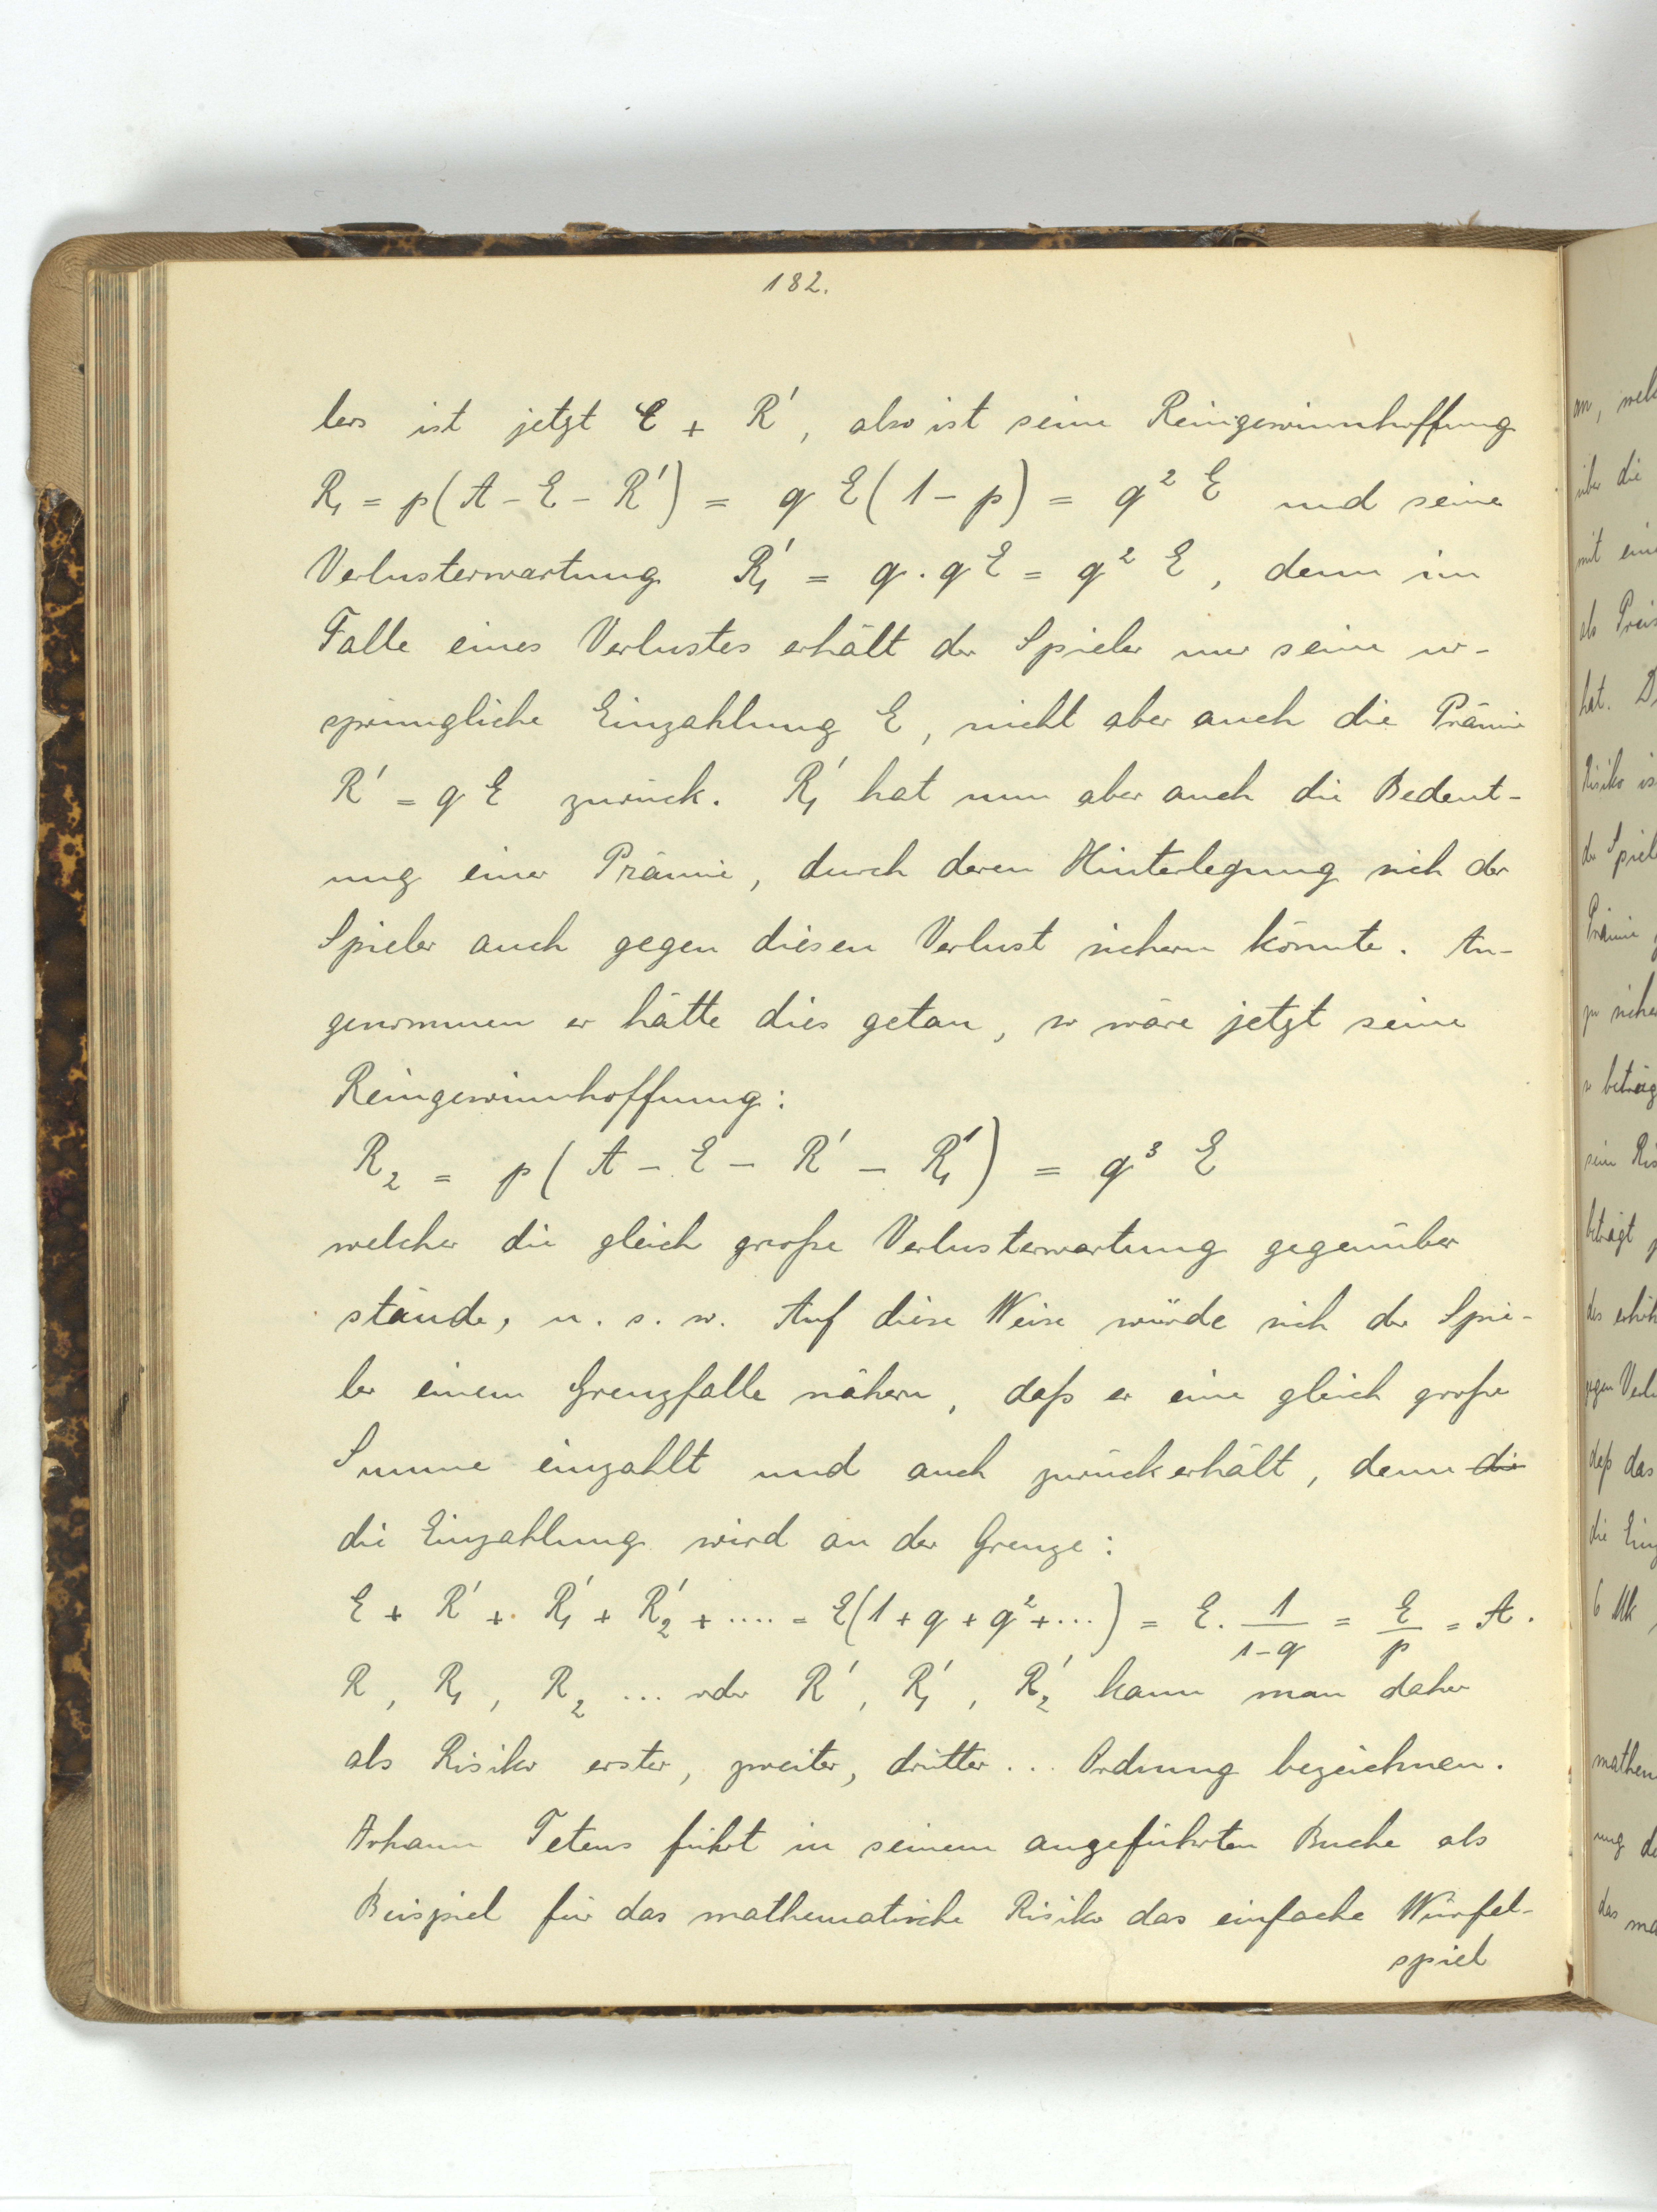 182.
lers ist jetzt E + R', also ist seine Reingewinnhoffnung
R₁ = p(A - E - R') = q E(1 - p) = q² E und seine
Verlusterwartung R₁' = q . q E = q² E, denn im
Falle eines Verlustes erhält der Spieler nur seine ur-
sprüngliche Einzahlung E, nicht aber auch die Prämie
R' = q E zurück. R₁' hat nun aber auch die Bedeut-
ung einer Prämie, durch deren Hinterlegung sich der
Spieler auch gegen diesen Verlust sichern könnte. An-
genommen er hätte dies getan, so wäre jetzt seine
Reingewinnhoffnung:
R₂ = p(A - E - R' - R₁') = q³ E
welcher die gleich große Verlusterwartung gegenüber
stände, u. s. w. Auf diese Weise würde sich der Spie-
ler einem Grenzfalle nähern, daß er eine gleich große
Summe einzahlt und auch zurückerhält, denn die
die Einzahlung wird an der Grenze:
E + R' + R₁' + R₂' + .... = E(1 + q + q² + ...) = E. 1/(1-q) = E/p = A.
R, R₁, R₂ ... oder R', R₁', R₂' kann man daher
als Risiko erster, zweiter, dritter ... Ordnung bezeichnen.
Johann Tetens führt in seinem angeführten Buche als
Beispiel für das mathematische Risiko das einfache Würfel-
spiel
an, welch
über die
mit ein
als Preis
hat. D
Risiko is
der Spiel
Prämie
zu siche
so beträg
sein Ris
beträgt
des erhöh
gegen Verl
daß das
die Einz
6 Mk,
mathem
ung de
das ma